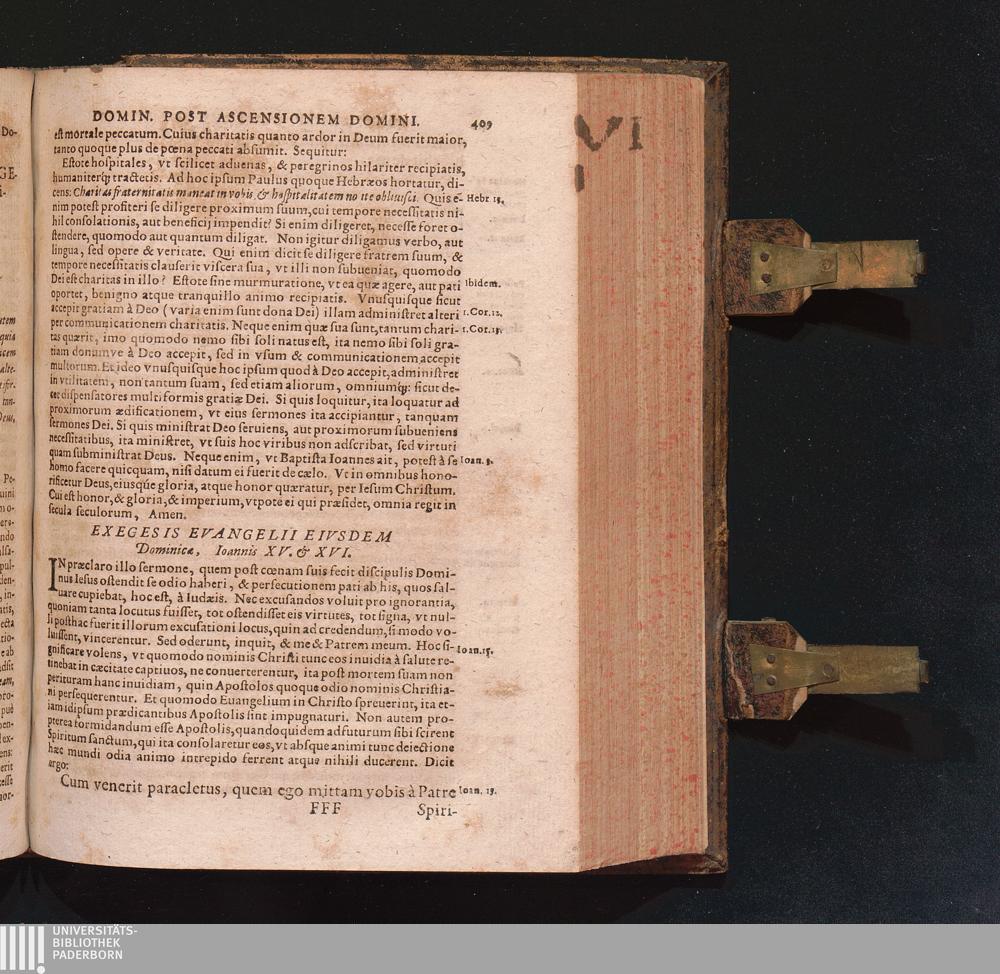 DOMIN. POST ASCENSIONEM DOMINI. 409
est mortale peccatum. Cuius charitatis quanto ardor in Deum fuerit maior,
tanto quoque plus de pœna peccati absumit. Sequitur:
Estote hospitales, vt scilicet aduenas, & peregrinos hilariter recipiatis,
humaniterq́; tractetis. Ad hoc ipsum Paulus quoque Hebræos hortatur, di-
cens: Charitas fraternitatis maneat in vobis, & hospitalitatem no ite obliuisci. Quis e- Hebr 13.
nim potest profiteri se diligere proximum suum, cui tempore necessitatis ni-
hil consolationis, aut beneficij impendit? Si enim diligeret, necesse foret o-
stendere, quomodo aut quantum diligat. Non igitur diligamus verbo, aut
lingua, sed opere & veritate. Qui enim dicit se diligere fratrem suum, &
tempore necessitatis clauserit viscera sua, vt illi non subueniat, quomodo
Dei est charitas in illo? Estote sine murmuratione, vt ea quæ agere, aut pati Ibidem.
oportet, benigno atque tranquillo animo recipiatis. Vnusquisque sicut
accepit gratiam à Deo (varia enim sunt dona Dei) illam administret alteri 1. Cor. 12.
per communicationem charitatis. Neque enim quæ sua sunt, tantum chari- 1. Cor. 13.
tas quærit, imo quomodo nemo sibi soli natus est, ita nemo sibi soli gra-
tiam donumve à Deo accepit, sed in vsum & communicationem accepit
multorum. Et ideo vnusquisque hoc ipsum quod à Deo accepit, administret
in vtilitatem, non tantum suam, sed etiam aliorum, omniumq́;: sicut de-
cet dispensatores multiformis gratiæ Dei. Si quis loquitur, ita loquatur ad
proximorum ædificationem, vt eius sermones ita accipiantur, tanquam
sermones Dei. Si quis ministrat Deo seruiens, aut proximorum subueniens
necessitatibus, ita ministret, vt suis hoc viribus non adscribat, sed virtuti
quam subministrat Deus. Neque enim, vt Baptista Ioannes ait, potest à se Ioan. 3.
homo facere quicquam, nisi datum ei fuerit de cælo. Vt in omnibus hono-
rificetur Deus, eiusque gloria, atque honor quæratur, per Iesum Christum.
Cui est honor, & gloria, & imperium, vtpote ei qui præsidet, omnia regit in
secula seculorum, Amen.
EXEGESIS EVANGELII EIVSDEM
Dominicæ, Ioannis XV. & XVI.
IN præclaro illo sermone, quem post cœnam suis fecit discipulis Domi-
nus Iesus ostendit se odio haberi, & persecutionem pati ab his, quos sal-
uare cupiebat, hoc est, à Iudæis. Nec excusandos voluit pro ignorantia,
quoniam tanta locutus fuisset, tot ostendisset eis virtutes, tot signa, vt nul-
li posthac fuerit illorum excusationi locus, quin ad credendum, si modo vo-
luissent, vincerentur. Sed oderunt, inquit, & me & Patrem meum. Hoc si- Ioan. 15.
gnificare volens, vt quomodo nominis Christi tunc eos inuidia à salute re-
tinebat in cæcitate captiuos, ne conuerterentur, ita post mortem suam non
perituram hanc inuidiam, quin Apostolos quoque odio nominis Christia-
ni persequerentur. Et quomodo Euangelium in Christo spreuerint, ita et-
iam idipsum prædicantibus Apostolis sint impugnaturi. Non autem pro-
pterea formidandum esse Apostolis, quandoquidem adfuturum sibi scirent
Spiritum sanctum, qui ita consolaretur eos, vt absque animi tunc deiectione
hæc mundi odia animo intrepido ferrent atque nihili ducerent. Dicit
ergo:
Cum venerit paracletus, quem ego mittam vobis à Patre Ioan. 15.
FFF Spiri-
VI
UNIVERSITÄTS-
BIBLIOTHEK
PADERBORN